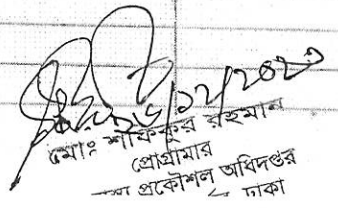 /12/2023
মোঃ শফিকুর রহমান
প্রোগ্রামার
প্রকৌশল অধিদপ্তর
ঢাকা